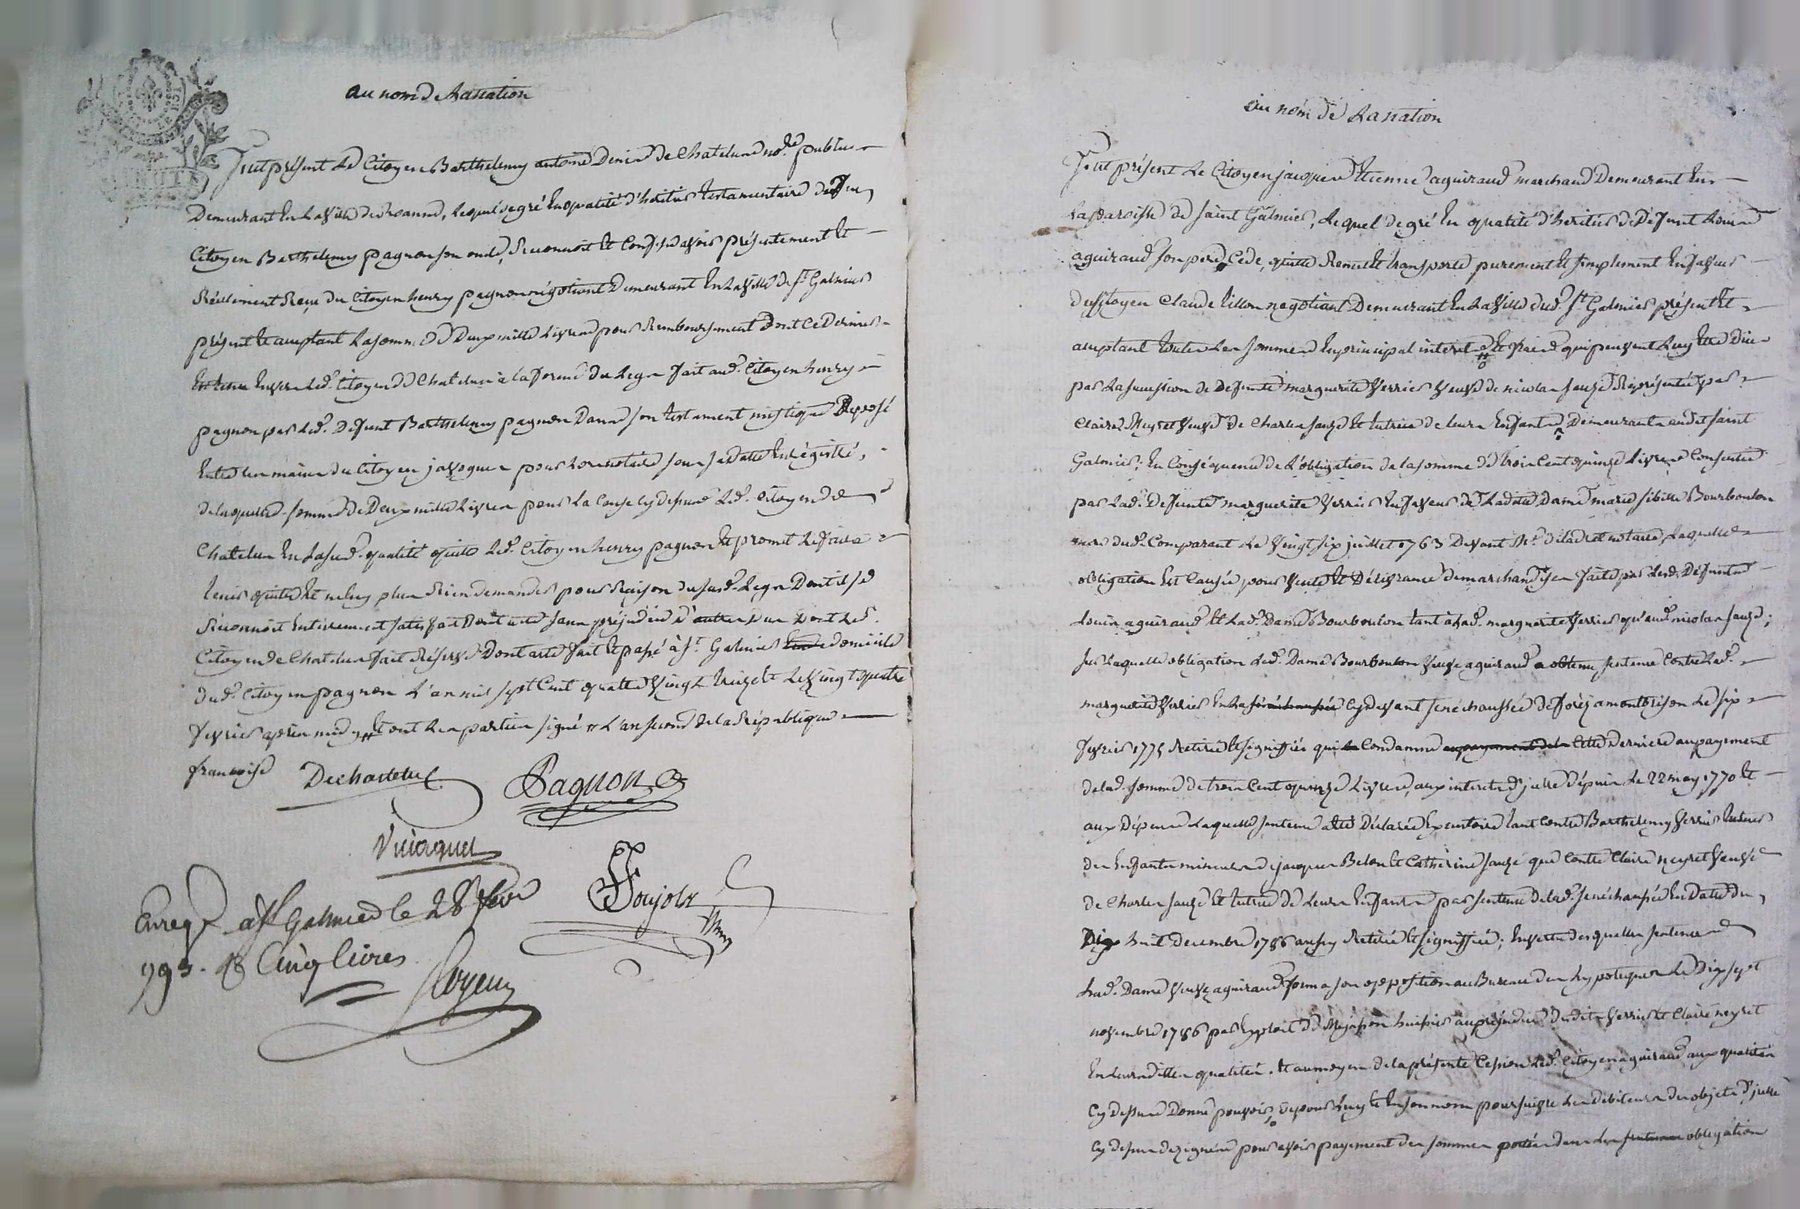 au nom de La nation
Fut présent Le Citoyen Barthelemy antoine Denis de Chatelus no.re public
Demeurant En La Ville de Roanne, Lequel de gré En qualité d'héritier testamentaire de feu
Citoyen Barthelemy pagnon son oncle, Reconnoit Et Confesse avoir présentement Et
Réellement Reçu du Citoyen henry pagnon négotiant Demeurant En La Ville de St. Galmier
présent Et acceptant La somme de Deux mille Livres pour Remboursement dont Ce Dernier
Est tenu Envers Led. Citoyen de Chatelus à la forme du Legs fait aud. Citoyen henry
pagnon par Led. Defunt Barthelemy pagnon Dans son testament mistique Déposé
Entre Les mains du Citoyen javogues pour Lors notaire sous sa datte Enrégistré,
de laquelle somme de Deux mille Livres pour La Cause cy dessus Led. Citoyen de
Chatelus En La sud. qualité quitte Led. Citoyen henry pagnon Et promet Le faire
tenir quitte Et ne luy plus Rien demander pour Raison du susd. Legs Dont il se
Reconnoit Entierement satisfait Dont acte sans préjudice d'autre Dont Led.
Citoyen de Chatelus fait Réserve Dont acte fait Et passé à St. Galmier Domicile
dud. Citoyen pagnon L'an mil sept Cent quatre Vingt treize Et Le Vingt quatre
fevrier après midy Et ont Les parties signé L'an second de la République
francoise Dechatelus Pagnon
Viricquel
Poujol
Enregé a St Galmier le 28 fevr
1793. R Cinq livres
Royeux
au nom de La nation
Fut présent Le Citoyen jacques Etienne aguiraud marchand Demeurant En
La paroisse de saint Galmier, Lequel de gré En qualité d'heritier de Defunt Louis
aguiraud son pere, Cede, quitte Remet Et transporte purement Et simplement En faveur
du Citoyen Claude tillon negotiant Demeurant En La Ville dud. St. Galmier présent Et
acceptant toutes Les sommes En principal interets Et frais qui peuvent Luy Etre Due
par La succession de Defunte marguerite Verrier Veuve de nicolas sauzé Représentée par
Claire Neyret Veuve de Charles sauzé Et tutrice de leurs Enfants, Demeurants audit saint
Galmier; En Conséquence de L'obligation de la somme de trois Cent quinze Livres Consentie
par Lad. Defunte marguerite Verrier En faveur de Ladite Dame marie sibille Bourboulon
mere dud. Comparant Le Vingt six juillet 1763 Devant Me. notaire, Laquelle
obligation Est Causée pour Vente Et Délivrance de marchandises faite par Led. Defunt
Louis aguiraud Et Lad. Dame Bourboulon tant à Lad. marguerite Verrier qu'aud. nicolas sauzé;
sur Laquelle obligation Led. Dame Bourboulon Veuve aguiraud a obtenu sentence Contre Lad.
marguerite Verrier En La cy devant senechaussée de forez a montbrison Le six
fevrier 1775 Retirée Et signifiée qui Condamne Cette derniere au payement
de lad. somme de trois Cent quinze Livres, aux interets d'icelle Depuis Le 22 may 1770 Et
aux Dépens Laquelle sentence a été Déclarée Executoire tant Contre Barthelemy Verrier tuteur
des Enfants mineurs de jacques Et Catherine sauzé que Contre Claire neyret Veuve
de Charles sauzé Et tutrice de Leurs Enfants par sentence de lad. senechaussée En Date du
Dix huit decembre 1786 aussy Retirée Et signiffiée; En vertu desquelles sentences
Lad. Dame Veuve aguiraud forma son opposition au Bureau des hypoteques Le Dix sept
novembre 1786 par Exploit de huissier au préjudice desdits Verrier Et Claire neyret
En leurs dittes qualités. Et au moyen de la présente Cession Led. Citoyen aguiraud aux qualités
Cy dessus Donne pouvoir pour Luy Et En son nom poursuivre Les debiteurs des objets d'icelle
Cy dessus designés pour avoir payement des sommes portées dans Les obligation